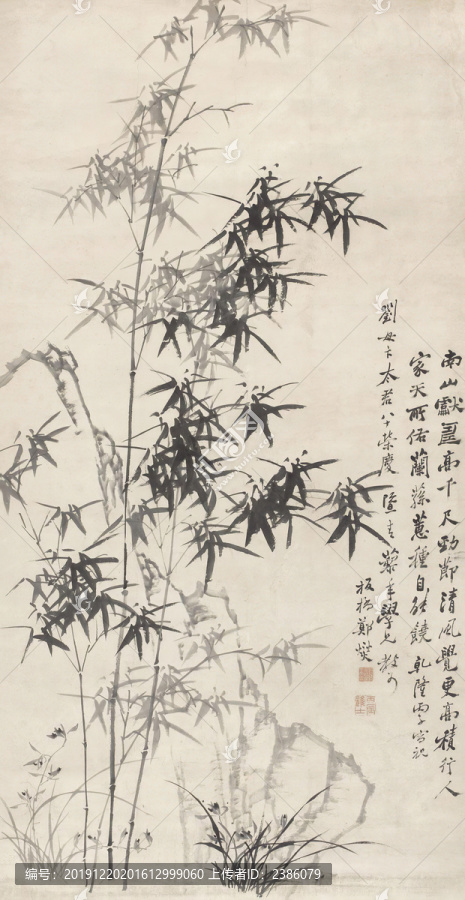 南山獻壽高千尺勁節清風覺更高積行人
家天所佑蘭蓀蕙種自能饒 乾隆丙子寫祝
劉母卞太君八十榮慶 暨青藜年學兄教可
板橋鄭燮
编号:20191220201612999060 上传者ID:2386079